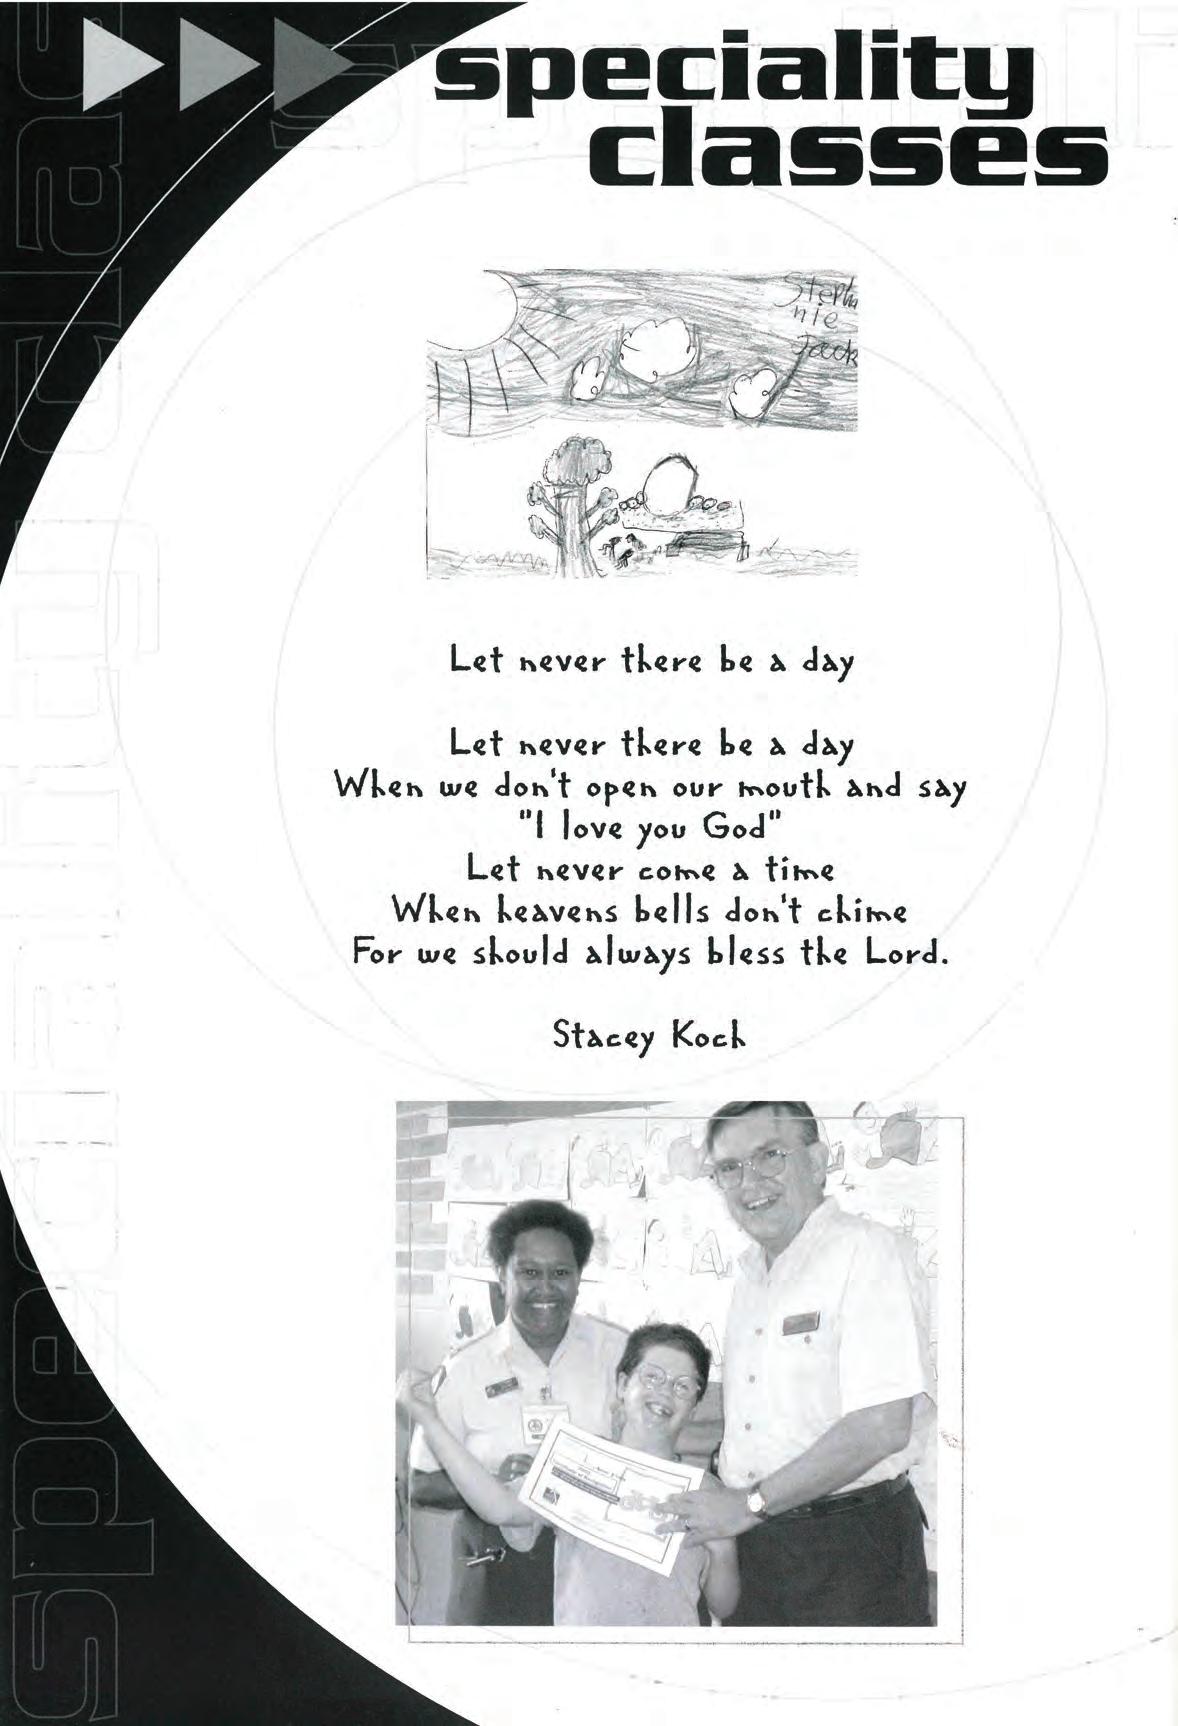 speciality
classes
Stepha
nie
Jack
Let never there be a day
Let never there be a day
When we don't open our mouth and say
"I love you God"
Let never come a time
When heavens bells don't chime
For we should always bless the Lord.
Stacey Koch
speciality clas